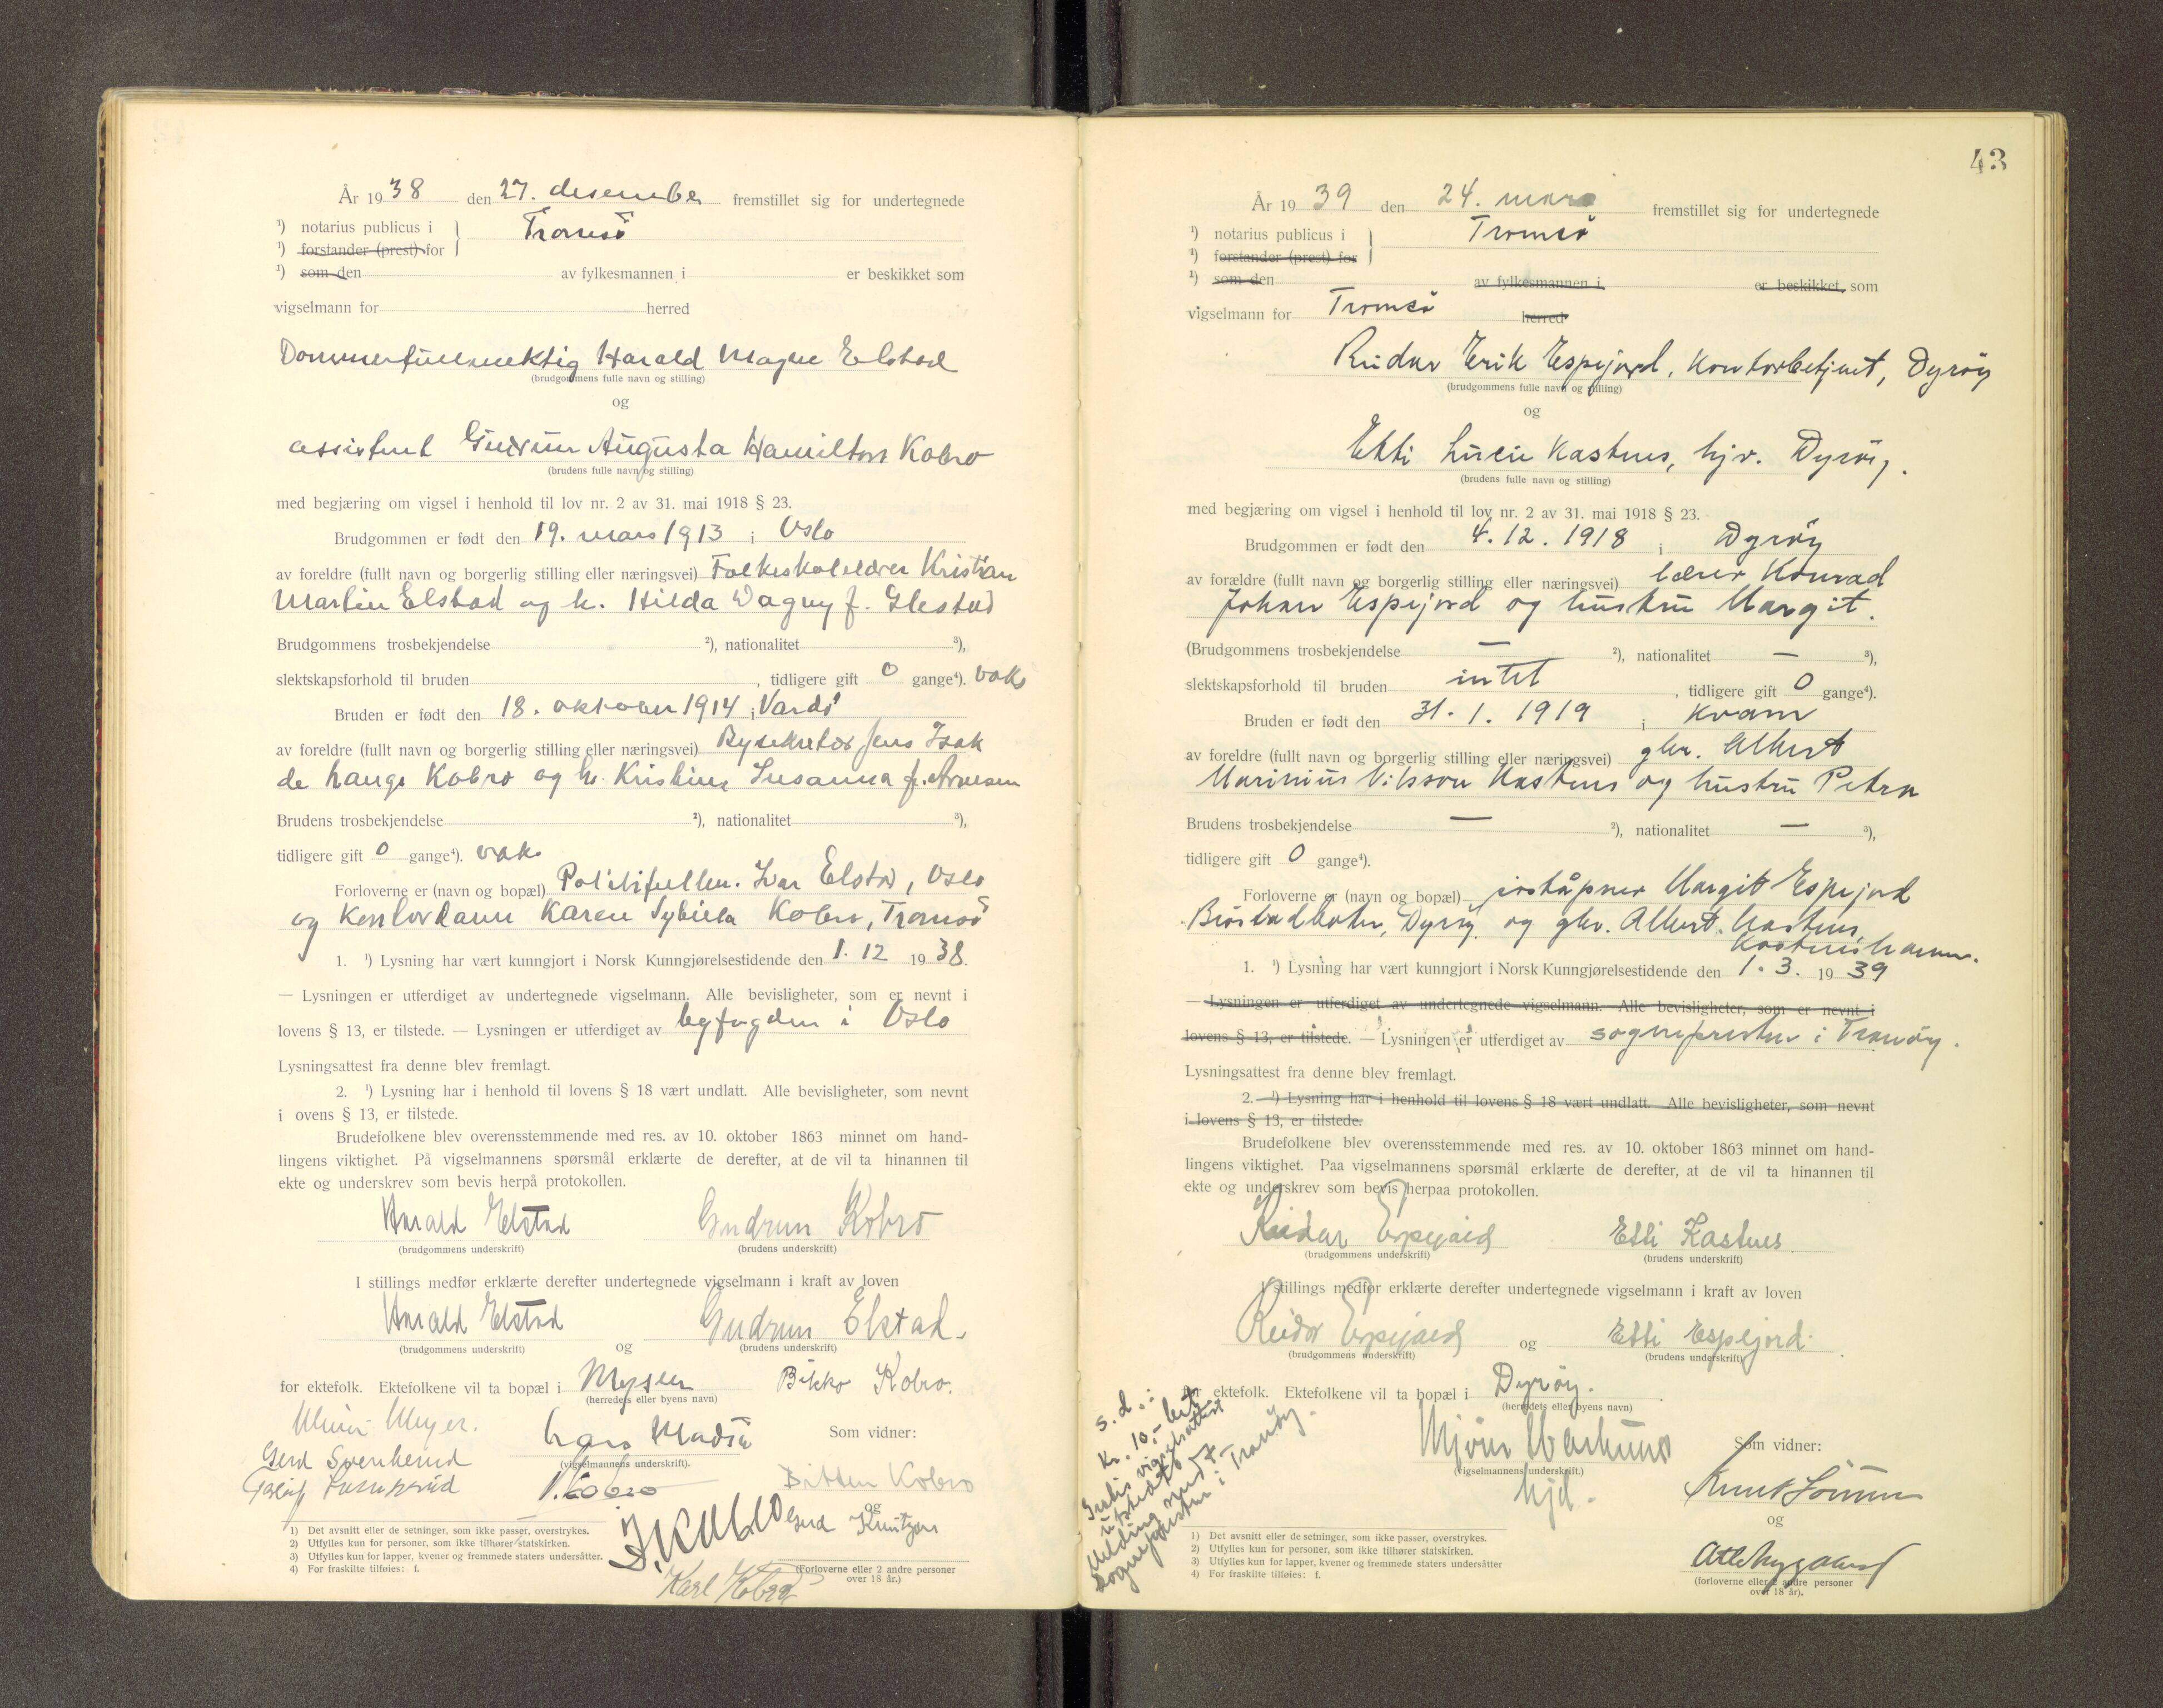 År 1938 den 27. desember fremstillet sig for undertegnede
¹) notarius publicus i } Tromsö
¹) forstander (prest) for
¹) som den av fylkesmannen i er beskikket som
vigselmann for herred
Dommerfullmektig Harald Magne Elstad
(brudgommens fulle navn og stilling)
og
assistent Gudrun Augusta Hamilton Kobro
(brudens fulle navn og stilling)
med begjæring om vigsel i henhold til lov nr. 2 av 31. mai 1918 § 23.
Brudgommen er født den 19. mars 1913 i Oslo
av foreldre (fullt navn og borgerlig stilling eller næringsvei) Folkeskolelærer Kristian
Martin Elstad og h. Hilda Dagny f. Glestad
Brudgommens trosbekjendelse ²), nationalitet ³),
slektskapsforhold til bruden , tidligere gift 0 gange⁴). vaks
Bruden er født den 18. oktober 1914 i Vardö
av foreldre (fullt navn og borgerlig stilling eller næringsvei) Bysekretær Jens Isak
de Lange Kobro og h. Kristine Susanna f. Arnesen
Brudens trosbekjendelse ²), nationalitet ³),
tidligere gift 0 gange⁴). vak.
Forloverne er (navn og bopæl) Politifullm. Ivar Elstad, Oslo
og Kontordame Karen Sybilla Kobro, Tromsö
1. ¹) Lysning har vært kunngjort i Norsk Kunngjørelsestidende den 1. 12 1938.
— Lysningen er utferdiget av undertegnede vigselmann. Alle bevisligheter, som er nevnt i
lovens § 13, er tilstede. — Lysningen er utferdiget av byfogden i Oslo
Lysningsattest fra denne blev fremlagt.
2. ¹) Lysning har i henhold til lovens § 18 vært undlatt. Alle bevisligheter, som nevnt
i ovens § 13, er tilstede.
Brudefolkene blev overensstemmende med res. av 10. oktober 1863 minnet om hand-
lingens viktighet. På vigselmannens spørsmål erklærte de derefter, at de vil ta hinannen til
ekte og underskrev som bevis herpå protokollen.
Harald Elstad Gudrun Kobro
(brudgommens underskrift) (brudens underskrift)
I stillings medfør erklærte derefter undertegnede vigselmann i kraft av loven
Harald Elstad Gudrun Elstad.
(brudgommens underskrift) og (brudens underskrift)
for ektefolk. Ektefolkene vil ta bopæl i Mysen Bikko Kobro.
(herredets eller byens navn)
Meyer. Lars Som vidner:
Gerd (vigselmannens underskrift).
Kobro Bitten Kobro
og
J. Kobro Gerd Knutzen
1) Det avsnitt eller de setninger, som ikke passer, overstrykes.
2) Utfylles kun for personer, som ikke tilhører statskirken.
3) Utfylles kun for lapper, kvener og fremmede staters undersåtter.
4) For fraskilte tilføies: f.
(Forloverne eller 2 andre personer
over 18 år.)
Karl Kobro
43
År 1939 den 24. mars fremstillet sig for undertegnede
¹) notarius publicus i } Tromsö
¹) forstander (prest) for
¹) som den av fylkesmannen i er beskikket som
vigselmann for Tromsö herred
Reidar Erik Espejord, Kontorbetjent, Dyröy
(brudgommens fulle navn og stilling)
og
Etti Lucie Kastnes, hjv. Dyröy.
(brudens fulle navn og stilling)
med begjæring om vigsel i henhold til lov nr. 2 av 31. mai 1918 § 23.
Brudgommen er født den 4. 12. 1918 i Dyröy
av forældre (fullt navn og borgerlig stilling eller næringsvei) lærer Konrad
Johan Espejord og hustru Margit.
(Brudgommens trosbekjendelse — ²), nationalitet — ³),
slektskapsforhold til bruden intet , tidligere gift 0 gange⁴).
Bruden er født den 31. 1. 1919 i Kvam
av foreldre (fullt navn og borgerlig stilling eller næringsvei) gbr. Albert
Marinius Nilsson Kastnes og hustru Petra
Brudens trosbekjendelse — ²), nationalitet — ³),
tidligere gift 0 gange⁴).
Forloverne er (navn og bopæl) Margit Espejord
Bröstadbotn, Dyröy og gbr. Albert Kastnes,
Kastneshamn.
1. ¹) Lysning har vært kunngjort i Norsk Kunngjørelsestidende den 1. 3. 1939
— Lysningen er utferdiget av undertegnede vigselmann. Alle bevisligheter, som er nevnt i
lovens § 13, er tilstede. — Lysningen er utferdiget av sognepresten i Tranöy.
Lysningsattest fra denne blev fremlagt.
2. ¹) Lysning har i henhold til lovens § 18 vært undlatt. Alle bevisligheter, som nevnt
i lovens § 13, er tilstede.
Brudefolkene blev overensstemmende med res. av 10. oktober 1863 minnet om hand-
lingens viktighet. Paa vigselmannens spørsmål erklærte de derefter, at de vil ta hinannen til
ekte og underskrev som bevis herpaa protokollen.
Reidar Espejord Etti Kastnes
(brudgommens underskrift) (brudens underskrift)
I stillings medfør erklærte derefter undertegnede vigselmann i kraft av loven
Reidar Espejord og Etti Espejord.
(brudgommens underskrift) (brudens underskrift)
for ektefolk. Ektefolkene vil ta bopæl i Dyröy.
(herredets eller byens navn)
Som vidner:
(vigselmannens underskrift.)
hjd.
og
(forloverne eller 2 andre personer
over 18 år).
1) Det avsnitt eller de setninger, som ikke passer, overstrykes.
2) Utfylles kun for personer, som ikke tilhører statskirken.
3) Utfylles kun for lapper, kvener og fremmede staters undersåtter
4) For fraskilte tilføies: f.
s. d.:
Kr. 10,- bet
Gratis vigselsattest
utstedt
Melding sendt
sognepresten i Tranöy.